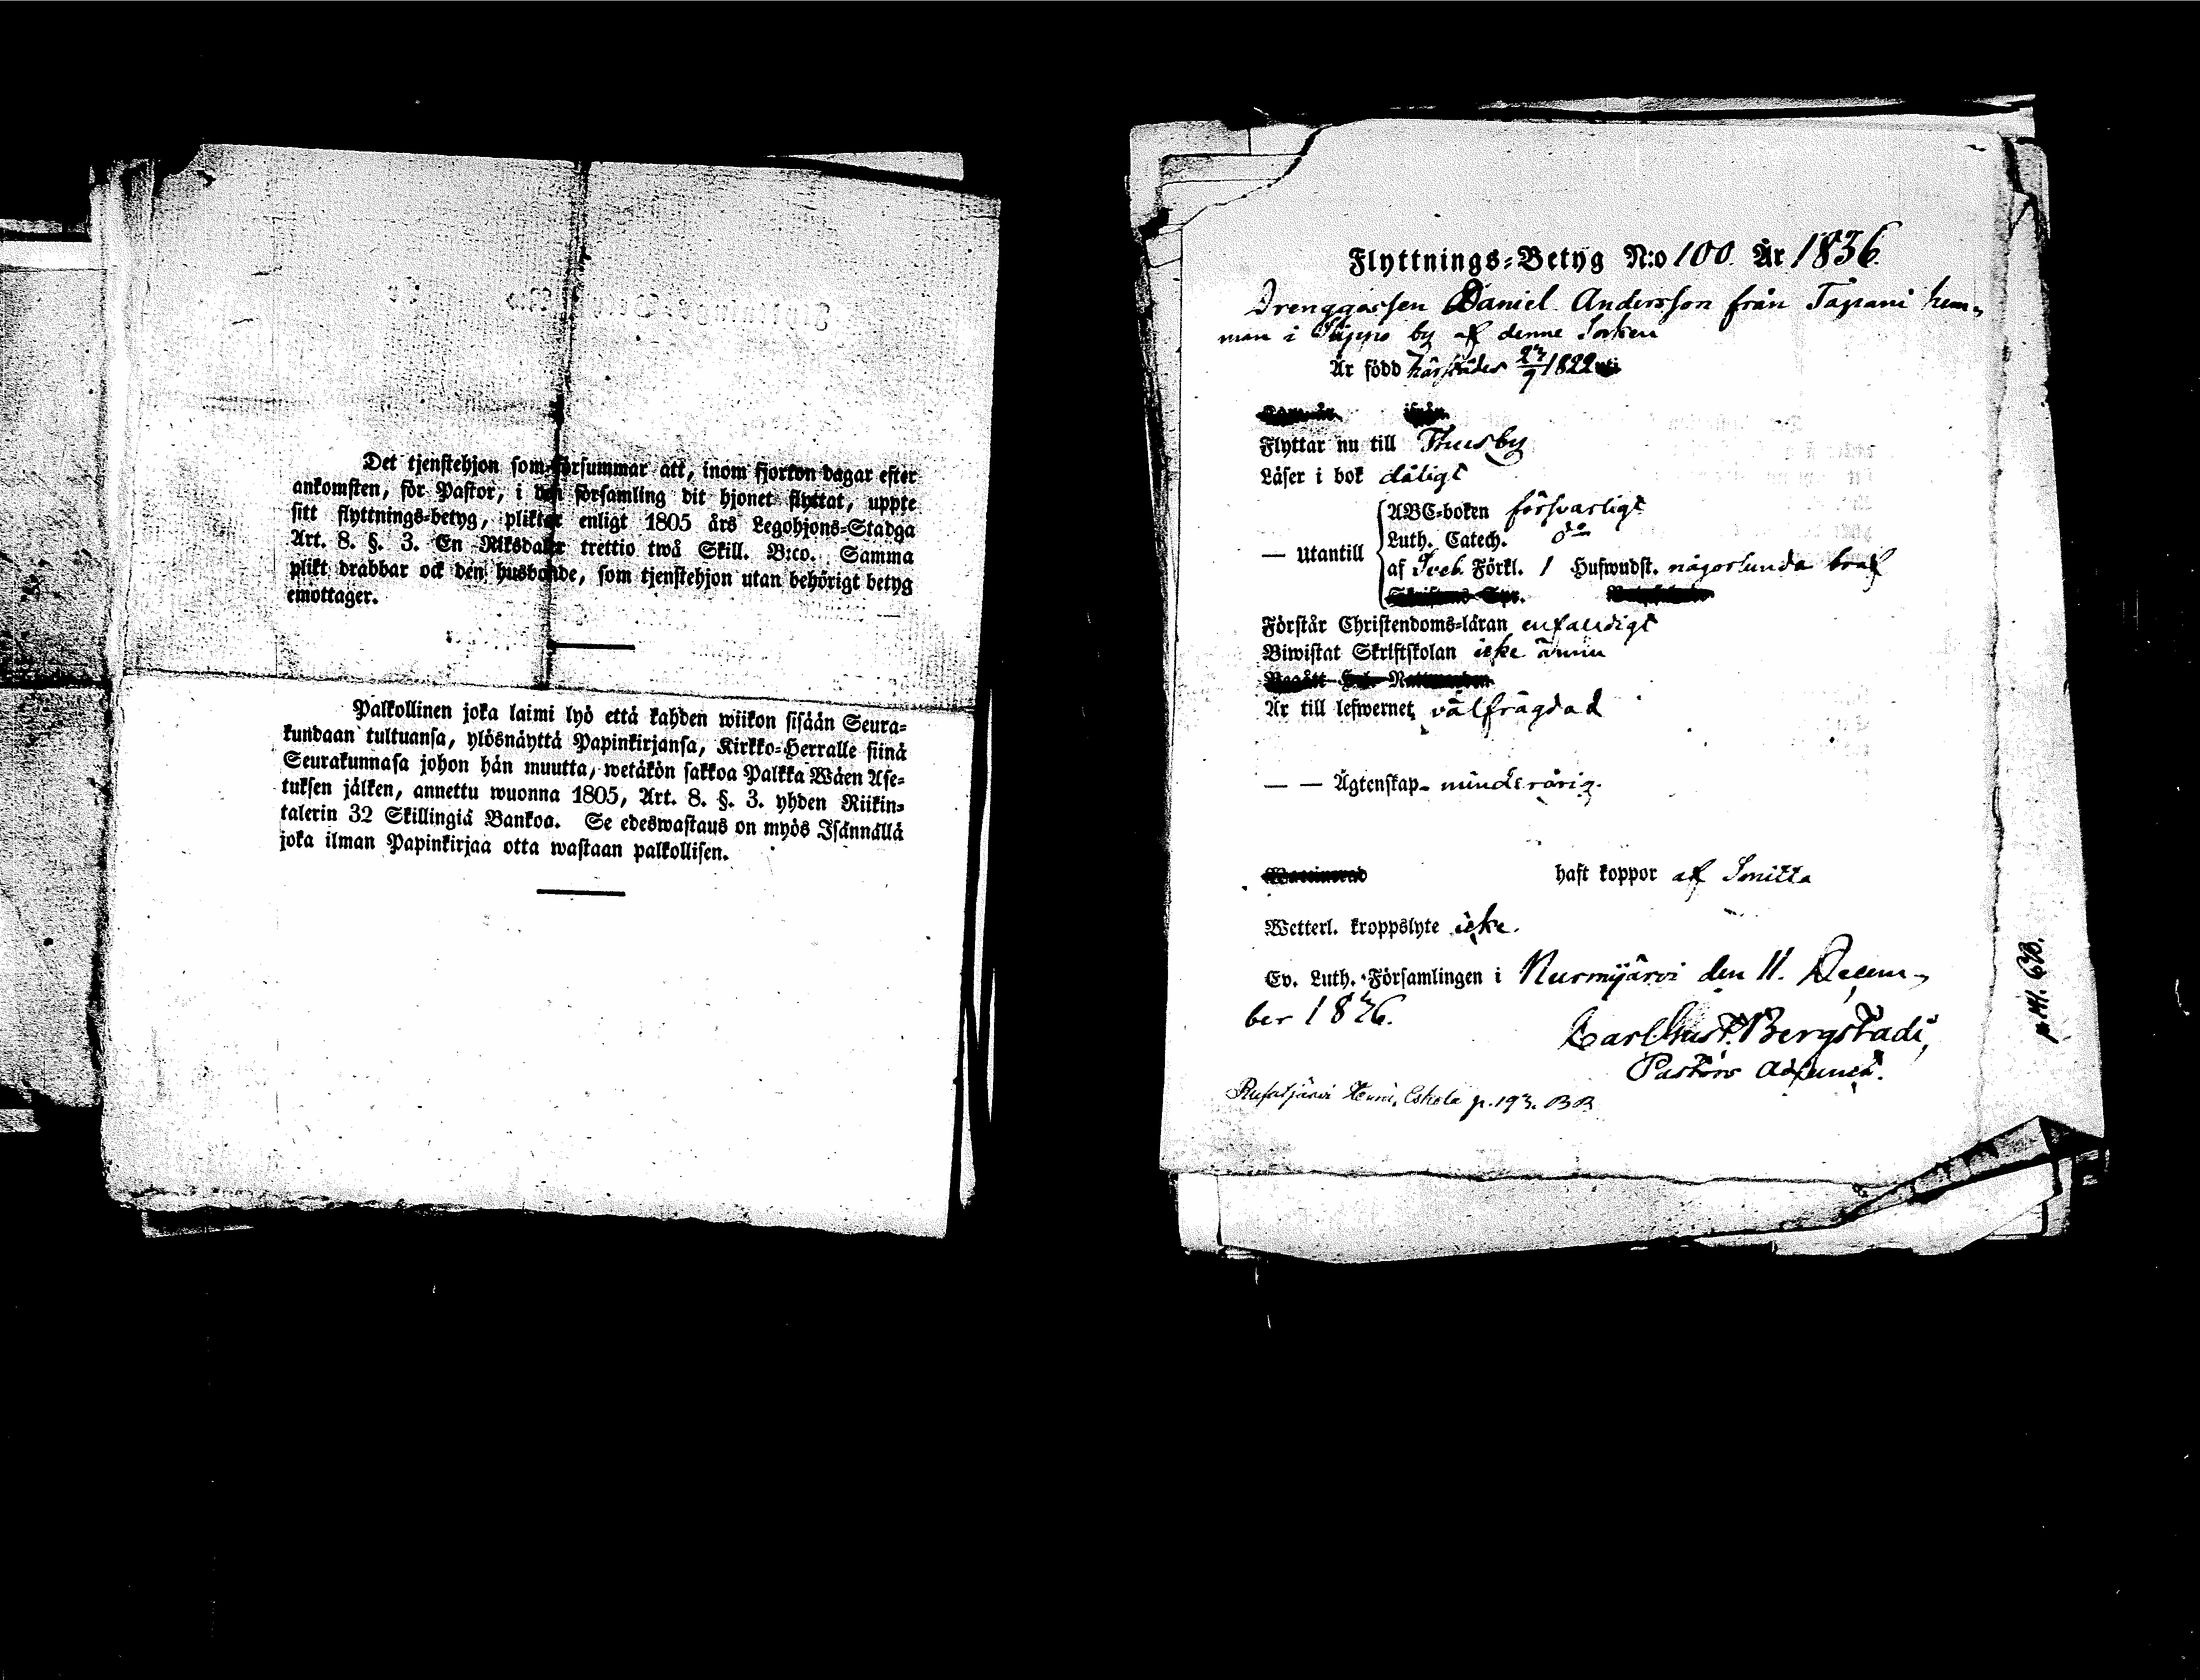 Det tjenstehjon som försummar att, inom fjorton dagar efter
ankomsten, för Pastor, i den församling dit hjonet flyttat, uppte
sitt flyttnings-betyg, pliktar enligt 1805 års Legohjons-Stadga
Art. 8. §. 3. En Riksdaler trettio twå Skill. B:co. Samma
plikt drabbar ock den husbonde, som tjenstehjon utan behörigt betyg
emottager.
Palkollinen joka laimi lyö että kahden wiikon sisään Seura-
kundaan tultuansa, ylösnäyttä Papinkirjansa, Kirkko-Herralle siinä
Seurakunnasa johon hän muutta, wetäkön sakkoa Palkka Wäen Ase-
tuksen jälken, annettu wuonna 1805, Art. 8. §. 3. yhden Riikin-
talerin 32 Skillingiä Bankoa. Se edeswastaus on myös Isännällä
joka ilman Papinkirjaa otta wastaan palkollisen.
Flyttnings-Betyg N:o 100. År 1836.
Drenggåssen Daniel Andersson från Tapani hem-
man i by af denne Socken
Är född härstädes 23/7 1822
Flyttar nu till Thusby
Läser i bok dåligt
— Utantill
ABC-boken försvarligt
Luth. Catech. do
af Sveb. Förkl. 1 Huswudst. någorlunda braf
Förstår Christendoms-läran enfaldigt
Biwistat Skriftskolan icke ännu
Är till lefwernet välfrägdad
— — Ägtenskap- minderårig.
haft koppor af Smitta
Wetterl. kroppslyte icke.
Ev. Luth. Församlingen i Nurmijärvi den 11. Decem-
ber 1836.
Carl Gust. Bergstadi,
Pastors Adjunct.
Rusutjärvi Heini, Eskola p. 193. BB
p 141. 63B.